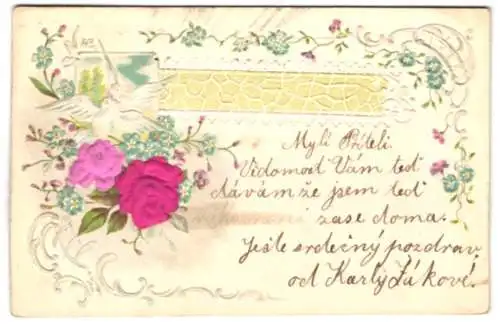 Myli Příteli.
Vědomost Vám teď
dávám že jsem teď
zase doma.
Ješte srdečný pozdrav
od Karly Žákové.